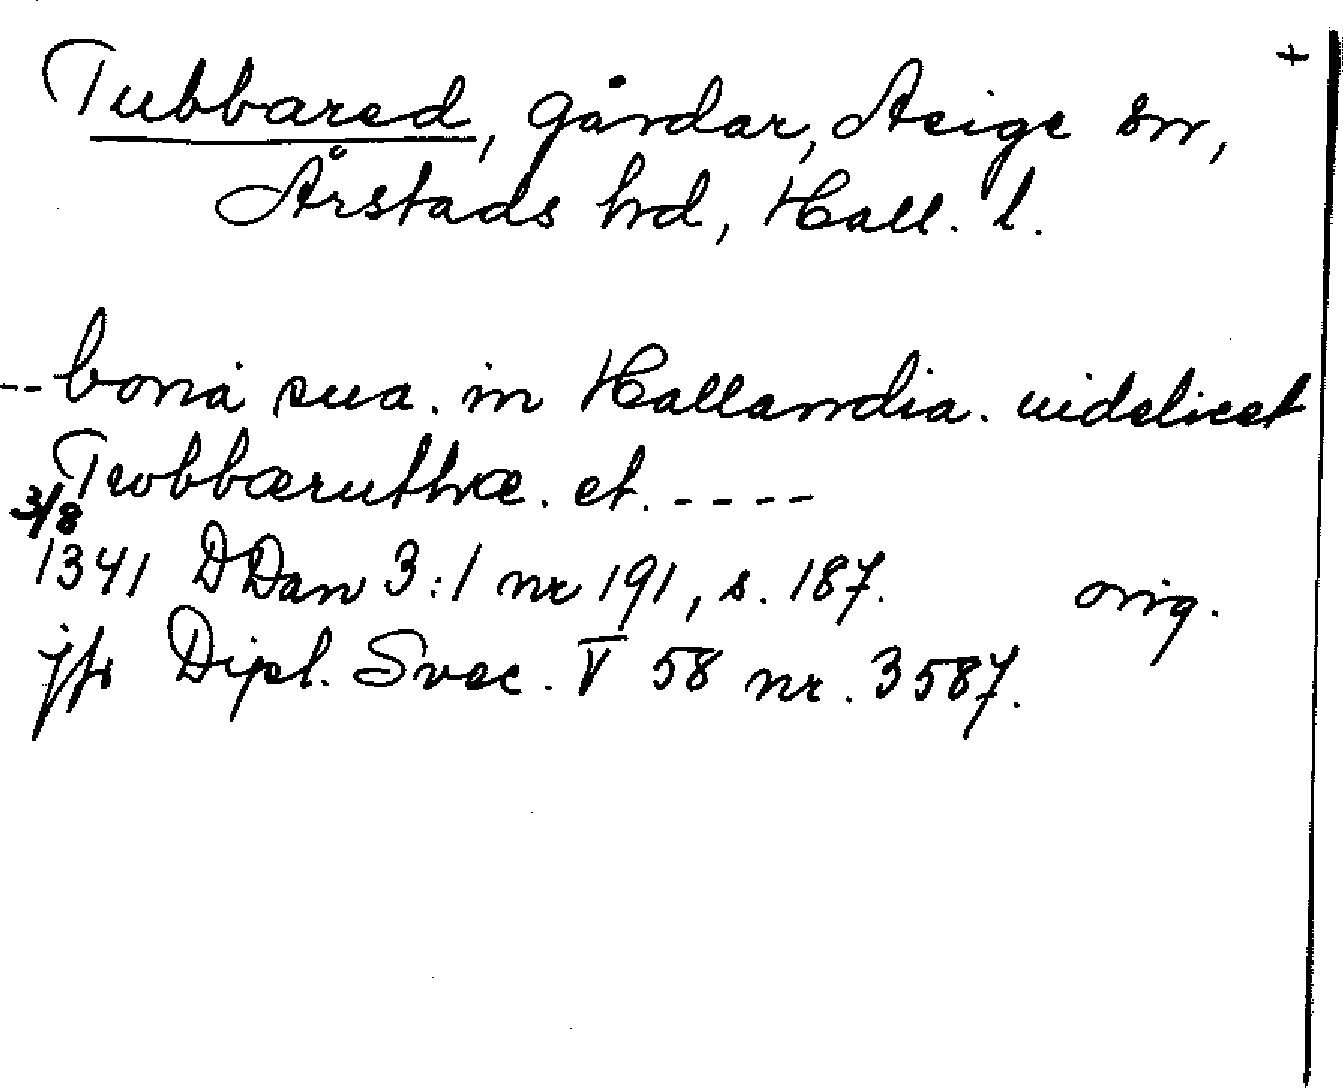 +
Tubbared, gårdar, Asige sn,
Årstads hd, Hall. l.
-- bona sua. in Hallandia. uidelicet
Twbbæruthæ. et. ----
3/8
1341 DDan 3:1 nr 191, s. 187. orig.
jfr Dipl. Svec. V 58 nr. 3587.